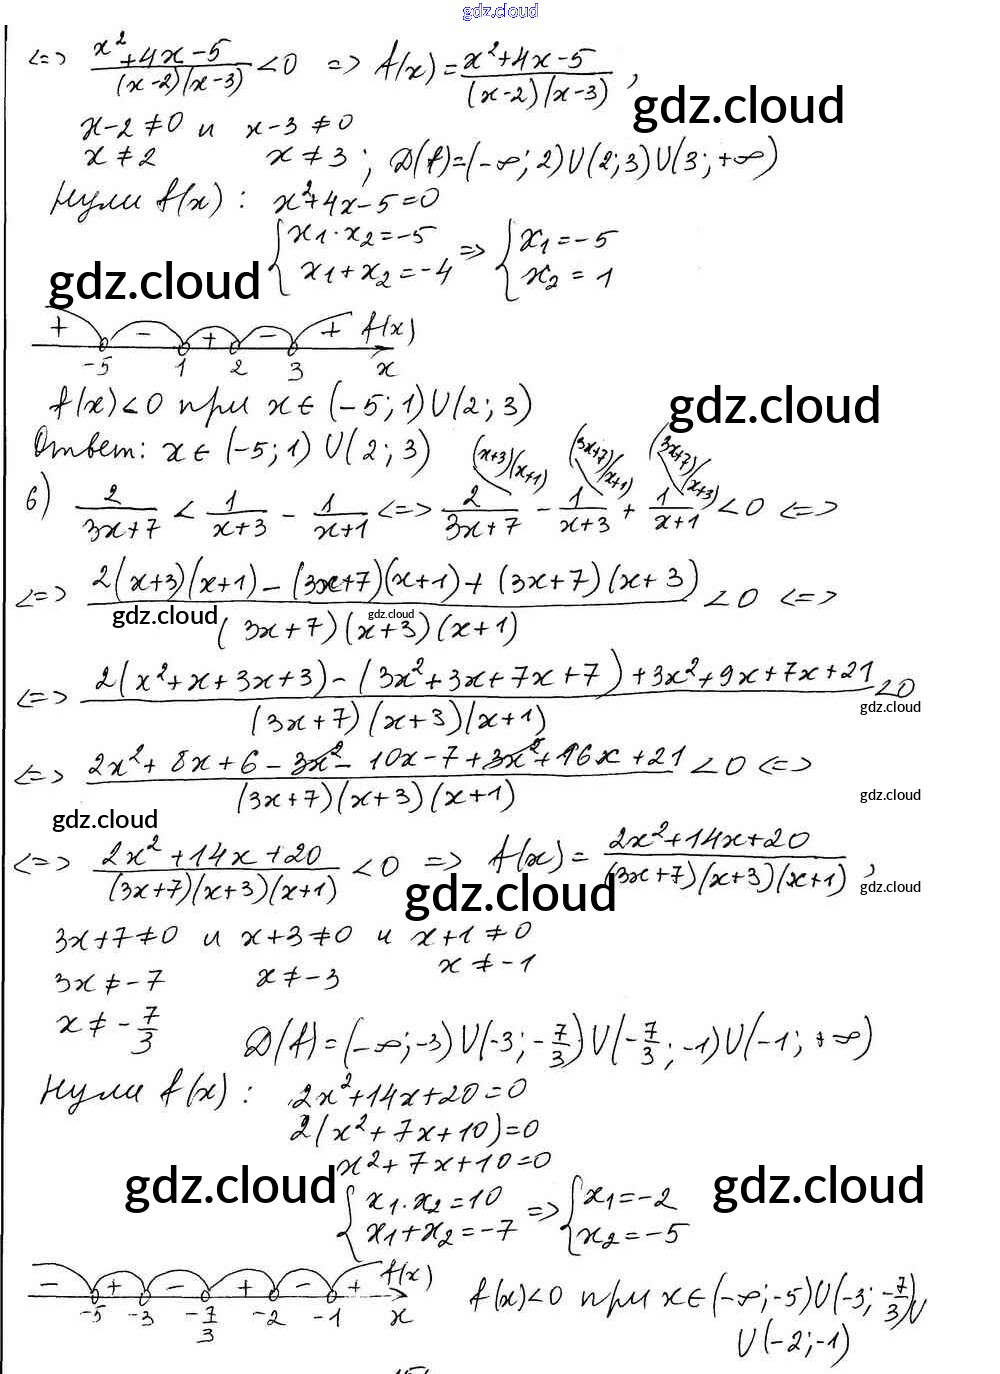 gdz.cloud
<=> (x²+4x-5)/((x-2)(x-3)) < 0 => f(x) = (x²+4x-5)/((x-2)(x-3)),
gdz.cloud
x-2≠0 и x-3≠0
x≠2 x≠3; D(f)=(-∞; 2)U(2; 3)U(3; +∞)
Нули f(x): x²+4x-5=0
{x₁·x₂=-5 => {x₁=-5
x₁+x₂=-4 x₂=1
gdz.cloud
+ - + - + f(x)
-5 1 2 3 x
f(x)<0 при x∈(-5; 1)U(2; 3)
gdz.cloud
Ответ: x∈(-5; 1)U(2; 3)
(x+3)(x+1) (3x+7)(x+1) (3x+7)(x+3)
б) 2/(3x+7) < 1/(x+3) - 1/(x+1) <=> 2/(3x+7) - 1/(x+3) + 1/(x+1) < 0 <=>
<=> (2(x+3)(x+1)-(3x+7)(x+1)+(3x+7)(x+3))/((3x+7)(x+3)(x+1)) < 0 <=>
gdz.cloud gdz.cloud
<=> (2(x²+x+3x+3)-(3x²+3x+7x+7)+3x²+9x+7x+21)/((3x+7)(x+3)(x+1)) < 0
gdz.cloud
<=> (2x²+8x+6-3x²-10x-7+3x²+16x+21)/((3x+7)(x+3)(x+1)) < 0 <=>
gdz.cloud
gdz.cloud
<=> (2x²+14x+20)/((3x+7)(x+3)(x+1)) < 0 => f(x) = (2x²+14x+20)/((3x+7)(x+3)(x+1)),
gdz.cloud gdz.cloud
3x+7≠0 и x+3≠0 и x+1≠0
3x≠-7 x≠-3 x≠-1
x≠-7/3 D(f)=(-∞; -3)U(-3; -7/3)U(-7/3; -1)U(-1; +∞)
Нули f(x): 2x²+14x+20=0
2(x²+7x+10)=0
x²+7x+10=0
gdz.cloud gdz.cloud
{x₁·x₂=10 => {x₁=-2
x₁+x₂=-7 x₂=-5
- + - + - + f(x)
-5 -3 -7/3 -2 -1 x
f(x)<0 при x∈(-∞; -5)U(-3; -7/3)U
U(-2; -1)